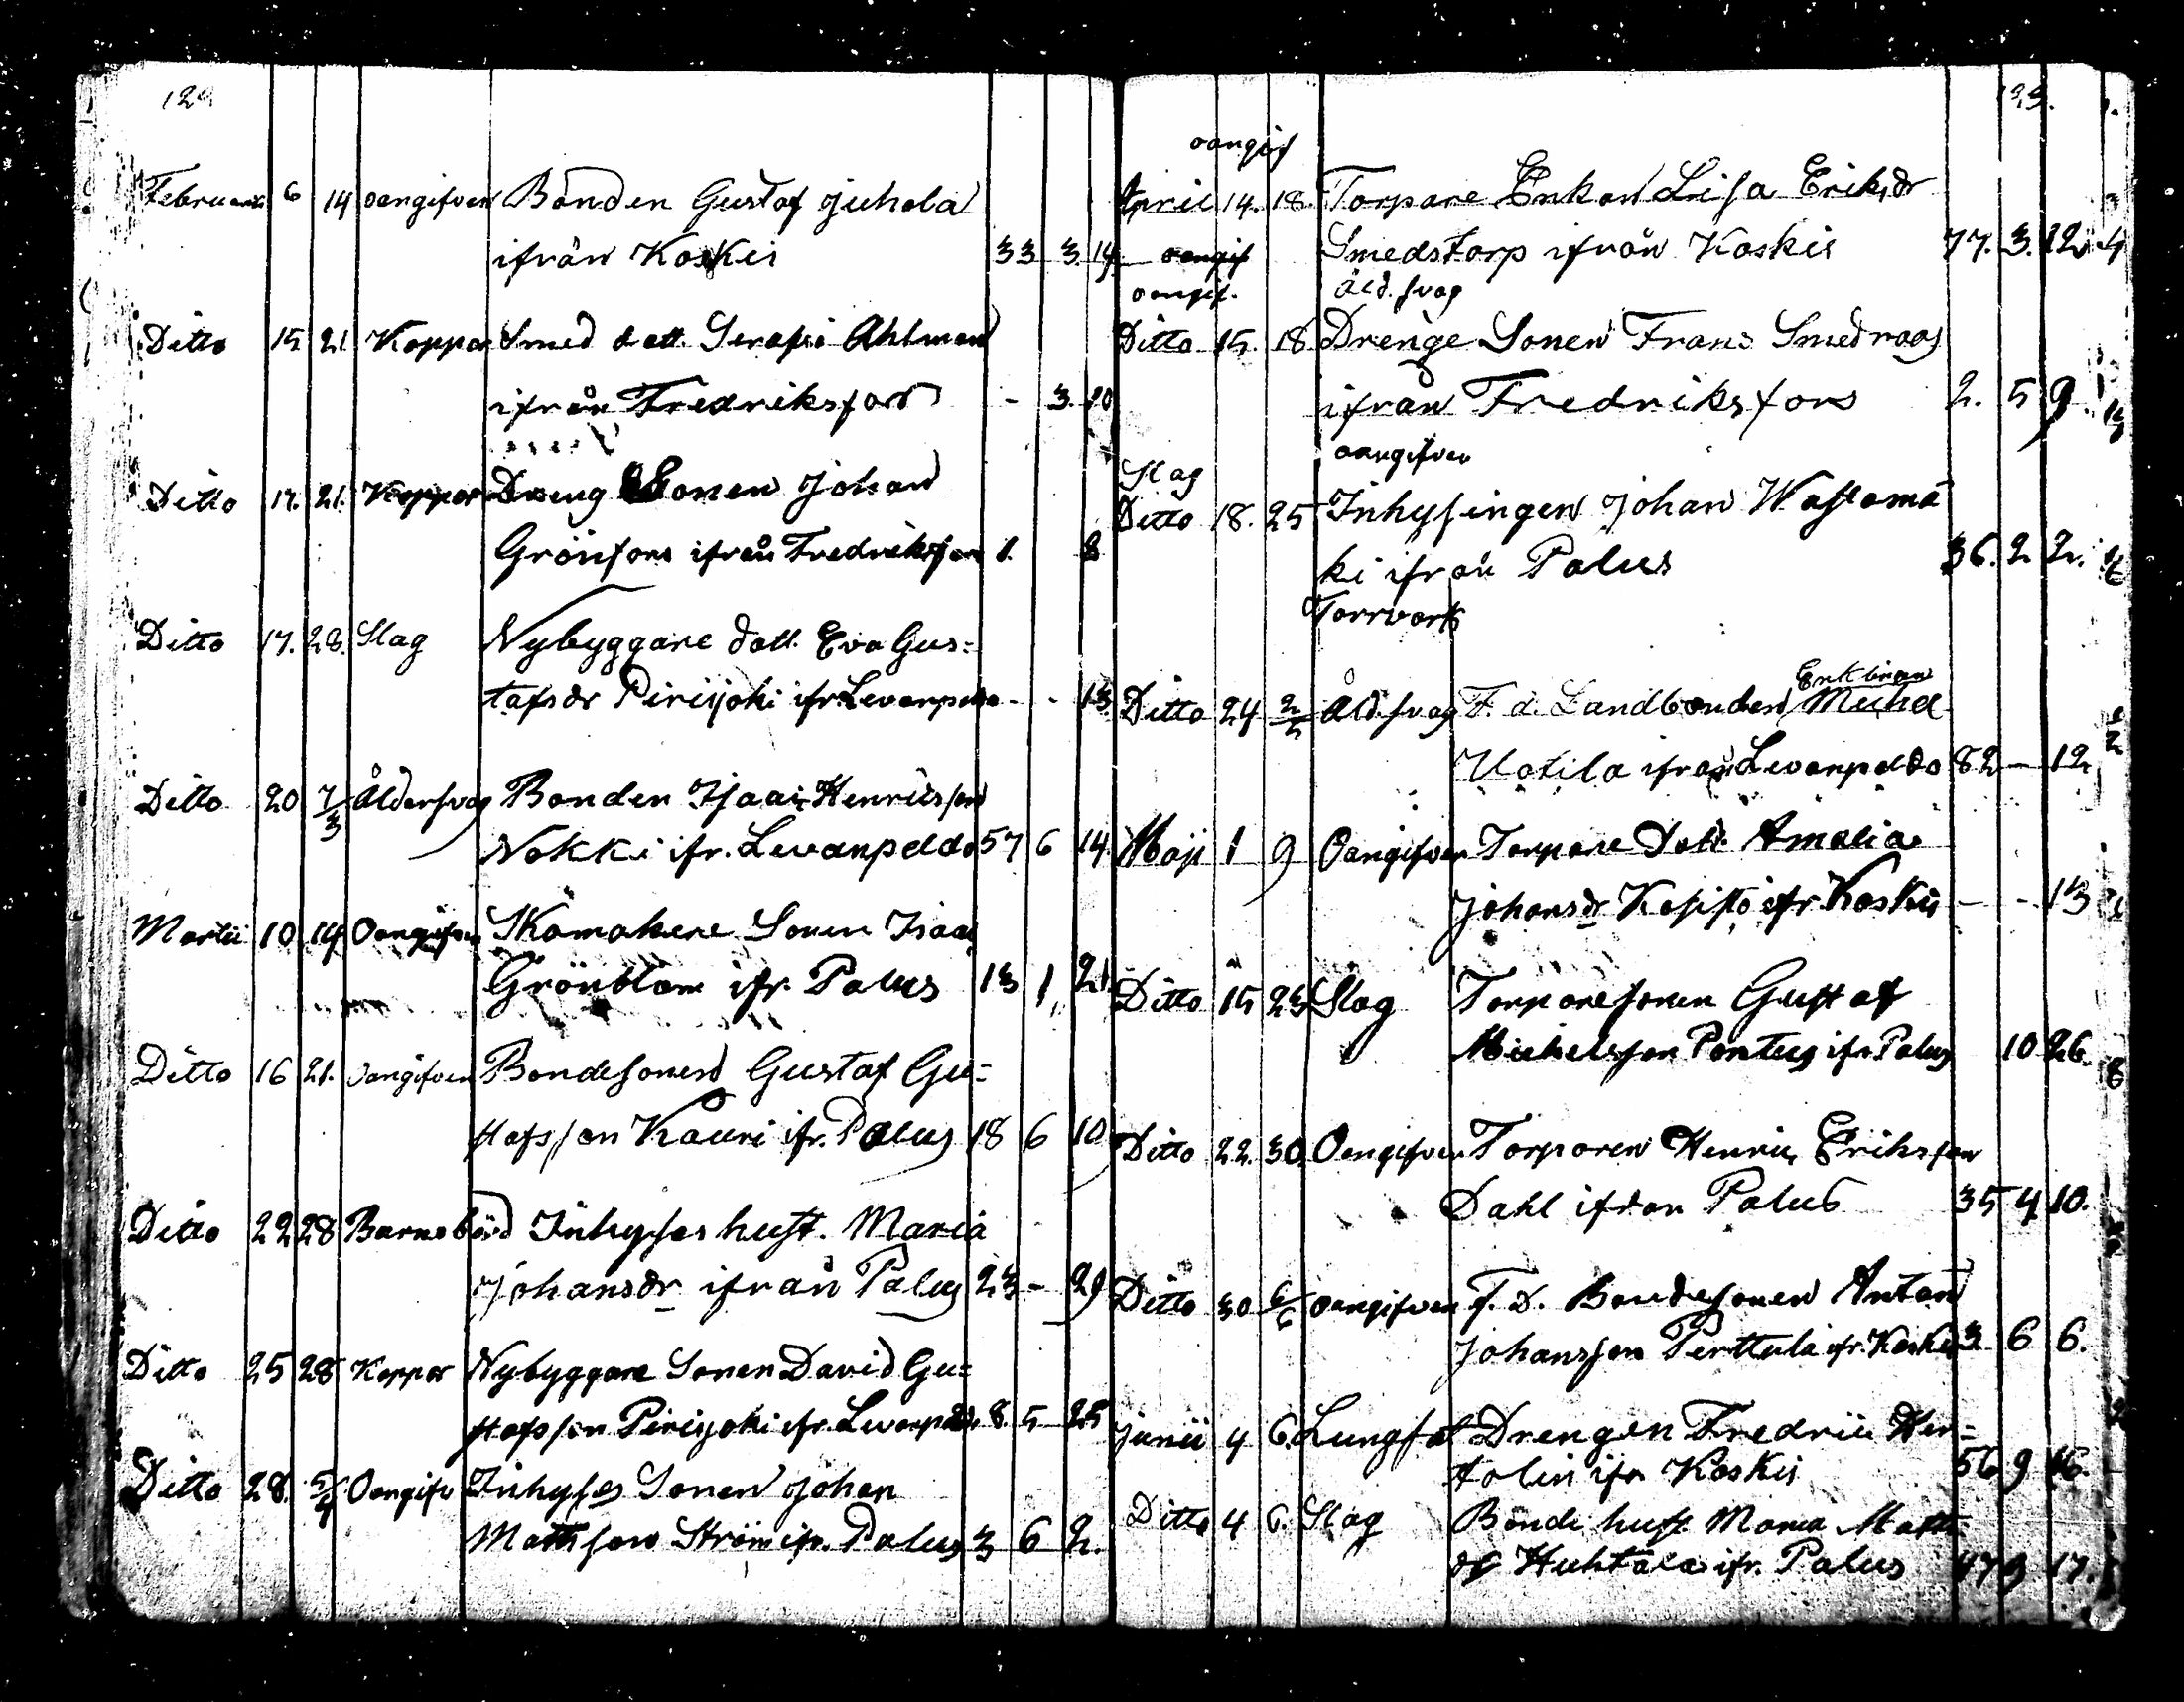 129
Februarii 6 14 oangifven Bonden Gustaf Juhola
ifrån Koskis 33 3. 14
Ditto 15 21 Koppor Smed dott. Serafia Ahlman
ifrån Fredriksfors - 3. 20
Ditto 17. 21. Koppor Dreng Sonen Johan
Grönfors ifrån Fredriksfors 1. 8
Ditto 17. 28. Slag Nybyggare dott. Eva Gus=
tafsdr Pirijoki ifr. Levanpelto - - 13
Ditto 20 7/3 Åldersvag Bonden Isaac Henriksson
Nokki ifr. Levanpeldo 57 6 14.
Martii 10 14 Oangifven Skomakere Sonen Isaac
Grönblom ifr. Palus 13 1 21
Ditto 16 21. oangifven Bondesonen Gustaf Gu=
stafsson Kauri ifr. Palus 18 6 10
Ditto 22 28 Barnsbörd Inhyses hust. Maria
Johansdr ifrån Palus 23 - 29
Ditto 25 28 Koppor Nybyggare Sonen David Gu=
stafsson Pirijoki ifr. Levanpeldo 8 5 25
Ditto 28. 5/4 Oangifv Inhyses Sonen Johan
Mattsson Ström ifr. Palus 3 6 2.
133.
oangif
April 14. 18. Torpare Enkan Lisa Eriksdr
oangif Smedstorp ifrån Koskis 77. 3. 12
oangif. Åld. svag
Ditto 15. 18 Drenge Sonen Frans Smedroos
ifrån Fredriksfors 2. 5 9.
oangifven
Slag
Ditto 18. 25 Inhysingen Johan Wastamä
ki ifrån Palus 36. 2 2.
Torrvärk
Enklingen
Ditto 24 2/5 Åld. svag F. d. Landbonden Michel
Uotila ifrån Levanpeldo 82 - 12
Maji 1 9 Oangifven Torpare Dott. Amalia
Johansdr Kasisto ifr. Koskis - - 13
Ditto 15 23 Slag Torparesonen Gustaf
Michelsson Pontus ifr. Palus 10 26.
Ditto 22. 30. Oangifven Torparen Henric Eriksson
Dahl ifrån Palus 35 4 10.
Ditto 30 6/6 oangifven f. D. Bondesonen Anton
Johansson Perttula ifr. Koskis 3 6 6.
Junii 4 6. Lungsot Drengen Fredric Her=
tolin ifr Koskis 56 9 16.
Ditto 4 6. Slag Bonde hust. Maria Matts
dr Huhtala ifr. Palus 47 9 17.